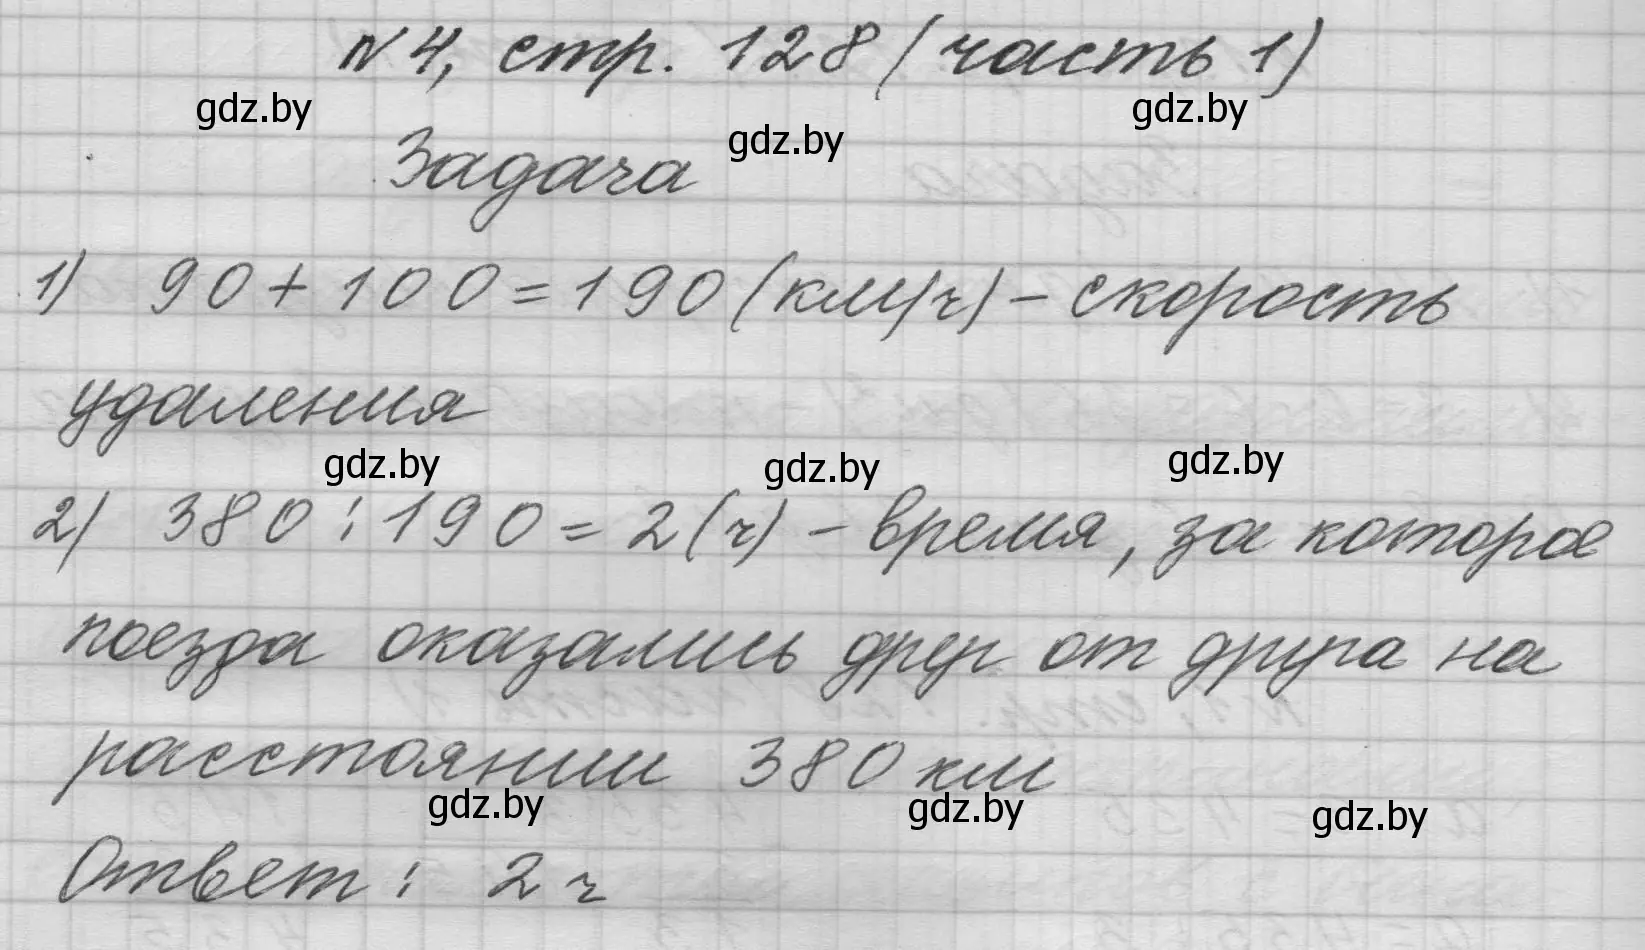 №4, стр. 128 (часть 1)
gdz.by gdz.by
gdz.by
Задача
1) 90+100=190 (км/ч) – скорость
удаления
gdz.by gdz.by gdz.by
2) 380:190=2 (ч) – время, за которое
поезда оказались друг от друга на
расстоянии 380 км
gdz.by gdz.by gdz.by
Ответ: 2 ч